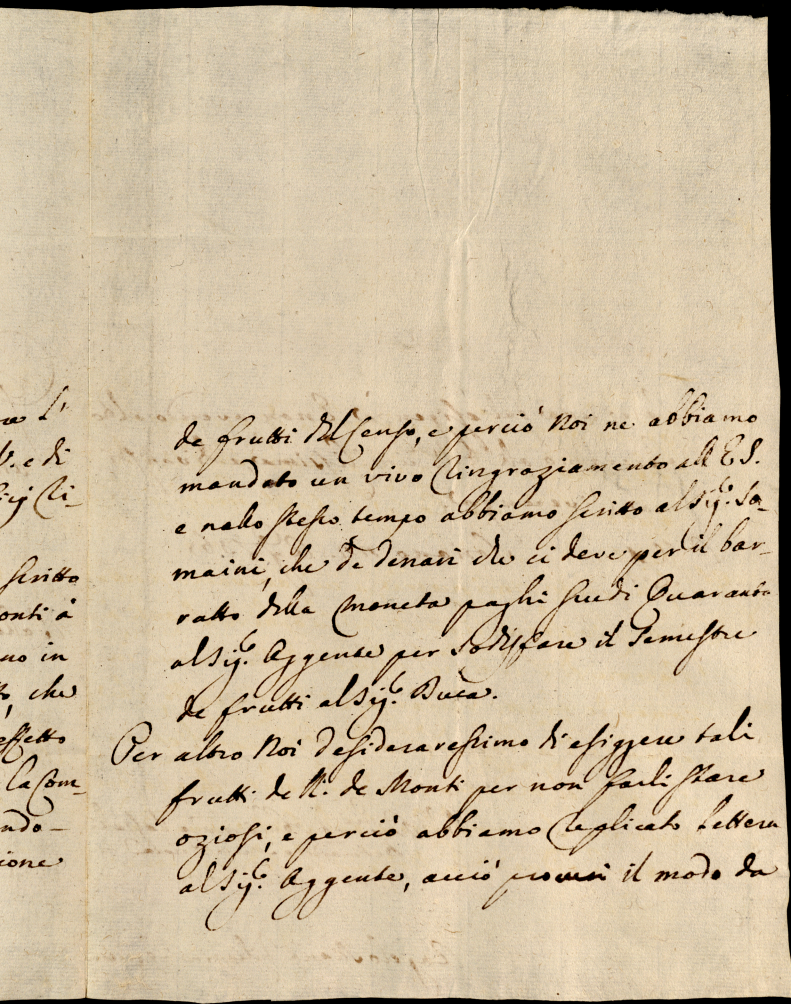 re L'
V. e di
Ri-
scritto
onti à
no in
to, che
effetto
la Com-
ndo-
zione
de frutti del Censo, e perciò Noi ne abbiamo
mandato un vivo Ringraziamento all E. S.
e nello stesso tempo abbiamo scritto al Sig.r So-
maini, che de denari che ci deve per il bar-
ratto della moneta paghi scudi Quaranta
al Sig.r Aggente per sodisfare il Semestre
de frutti al Sig.r Buca.
Per altro Noi desideraressimo di esiggere tali
frutti de N. de Monti per non farli stare
oziosi, e perciò abbiamo replicato lettera
al Sig.r Aggente, acciò provi il modo da